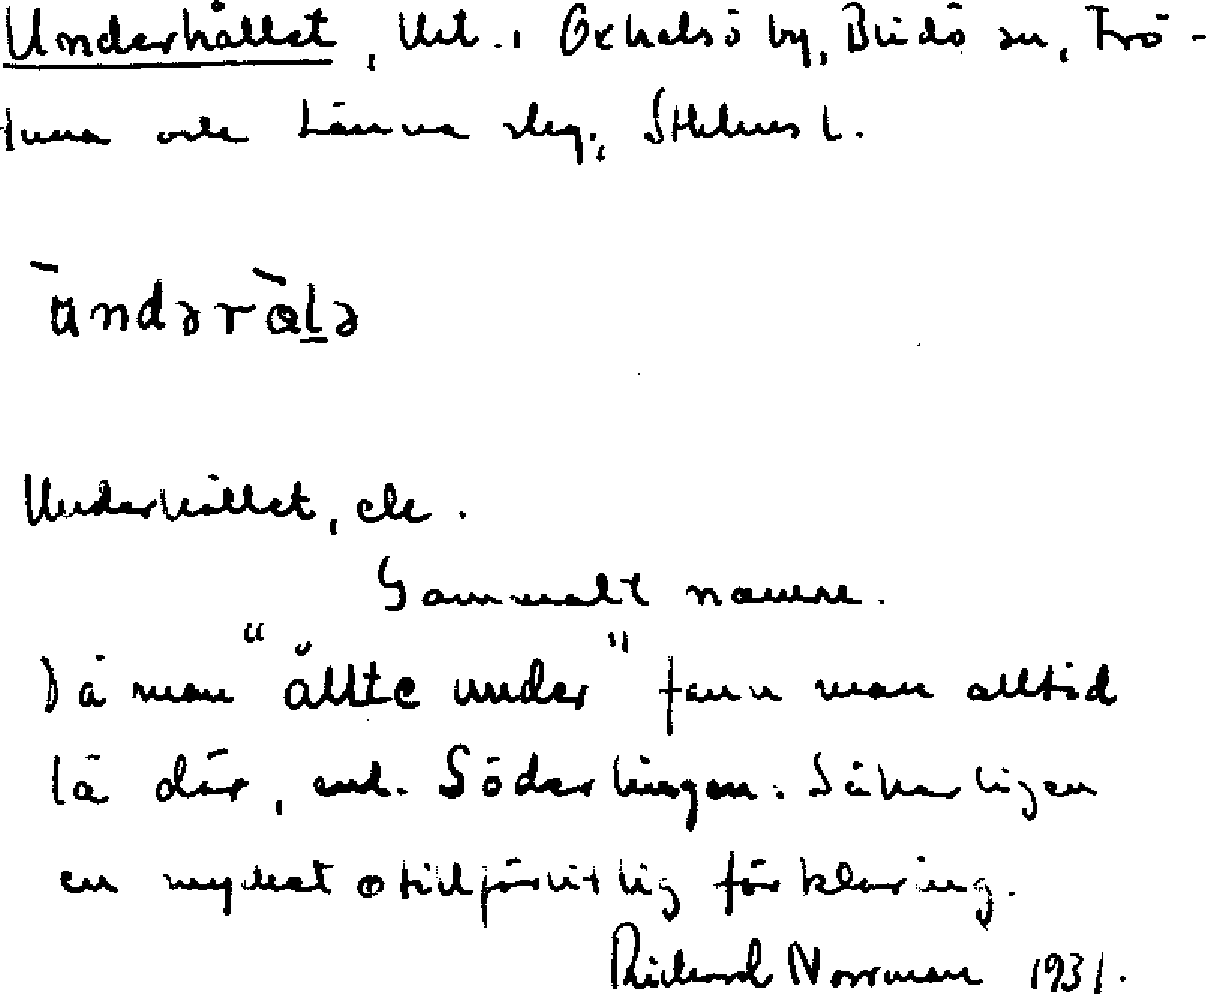 Underhållet, i Oxhalsö by, Blidö sn, Frö-
tuna och Länna skg., Sthlms l.
ùndəràlə
Underhållet,
Gammalt namn.
Då man "ållte under" fann man alltid
lä där, enl. Söderlingen. Säkerligen
en mycket otillförlitlig förklaring.
Richard Norrman 1931.